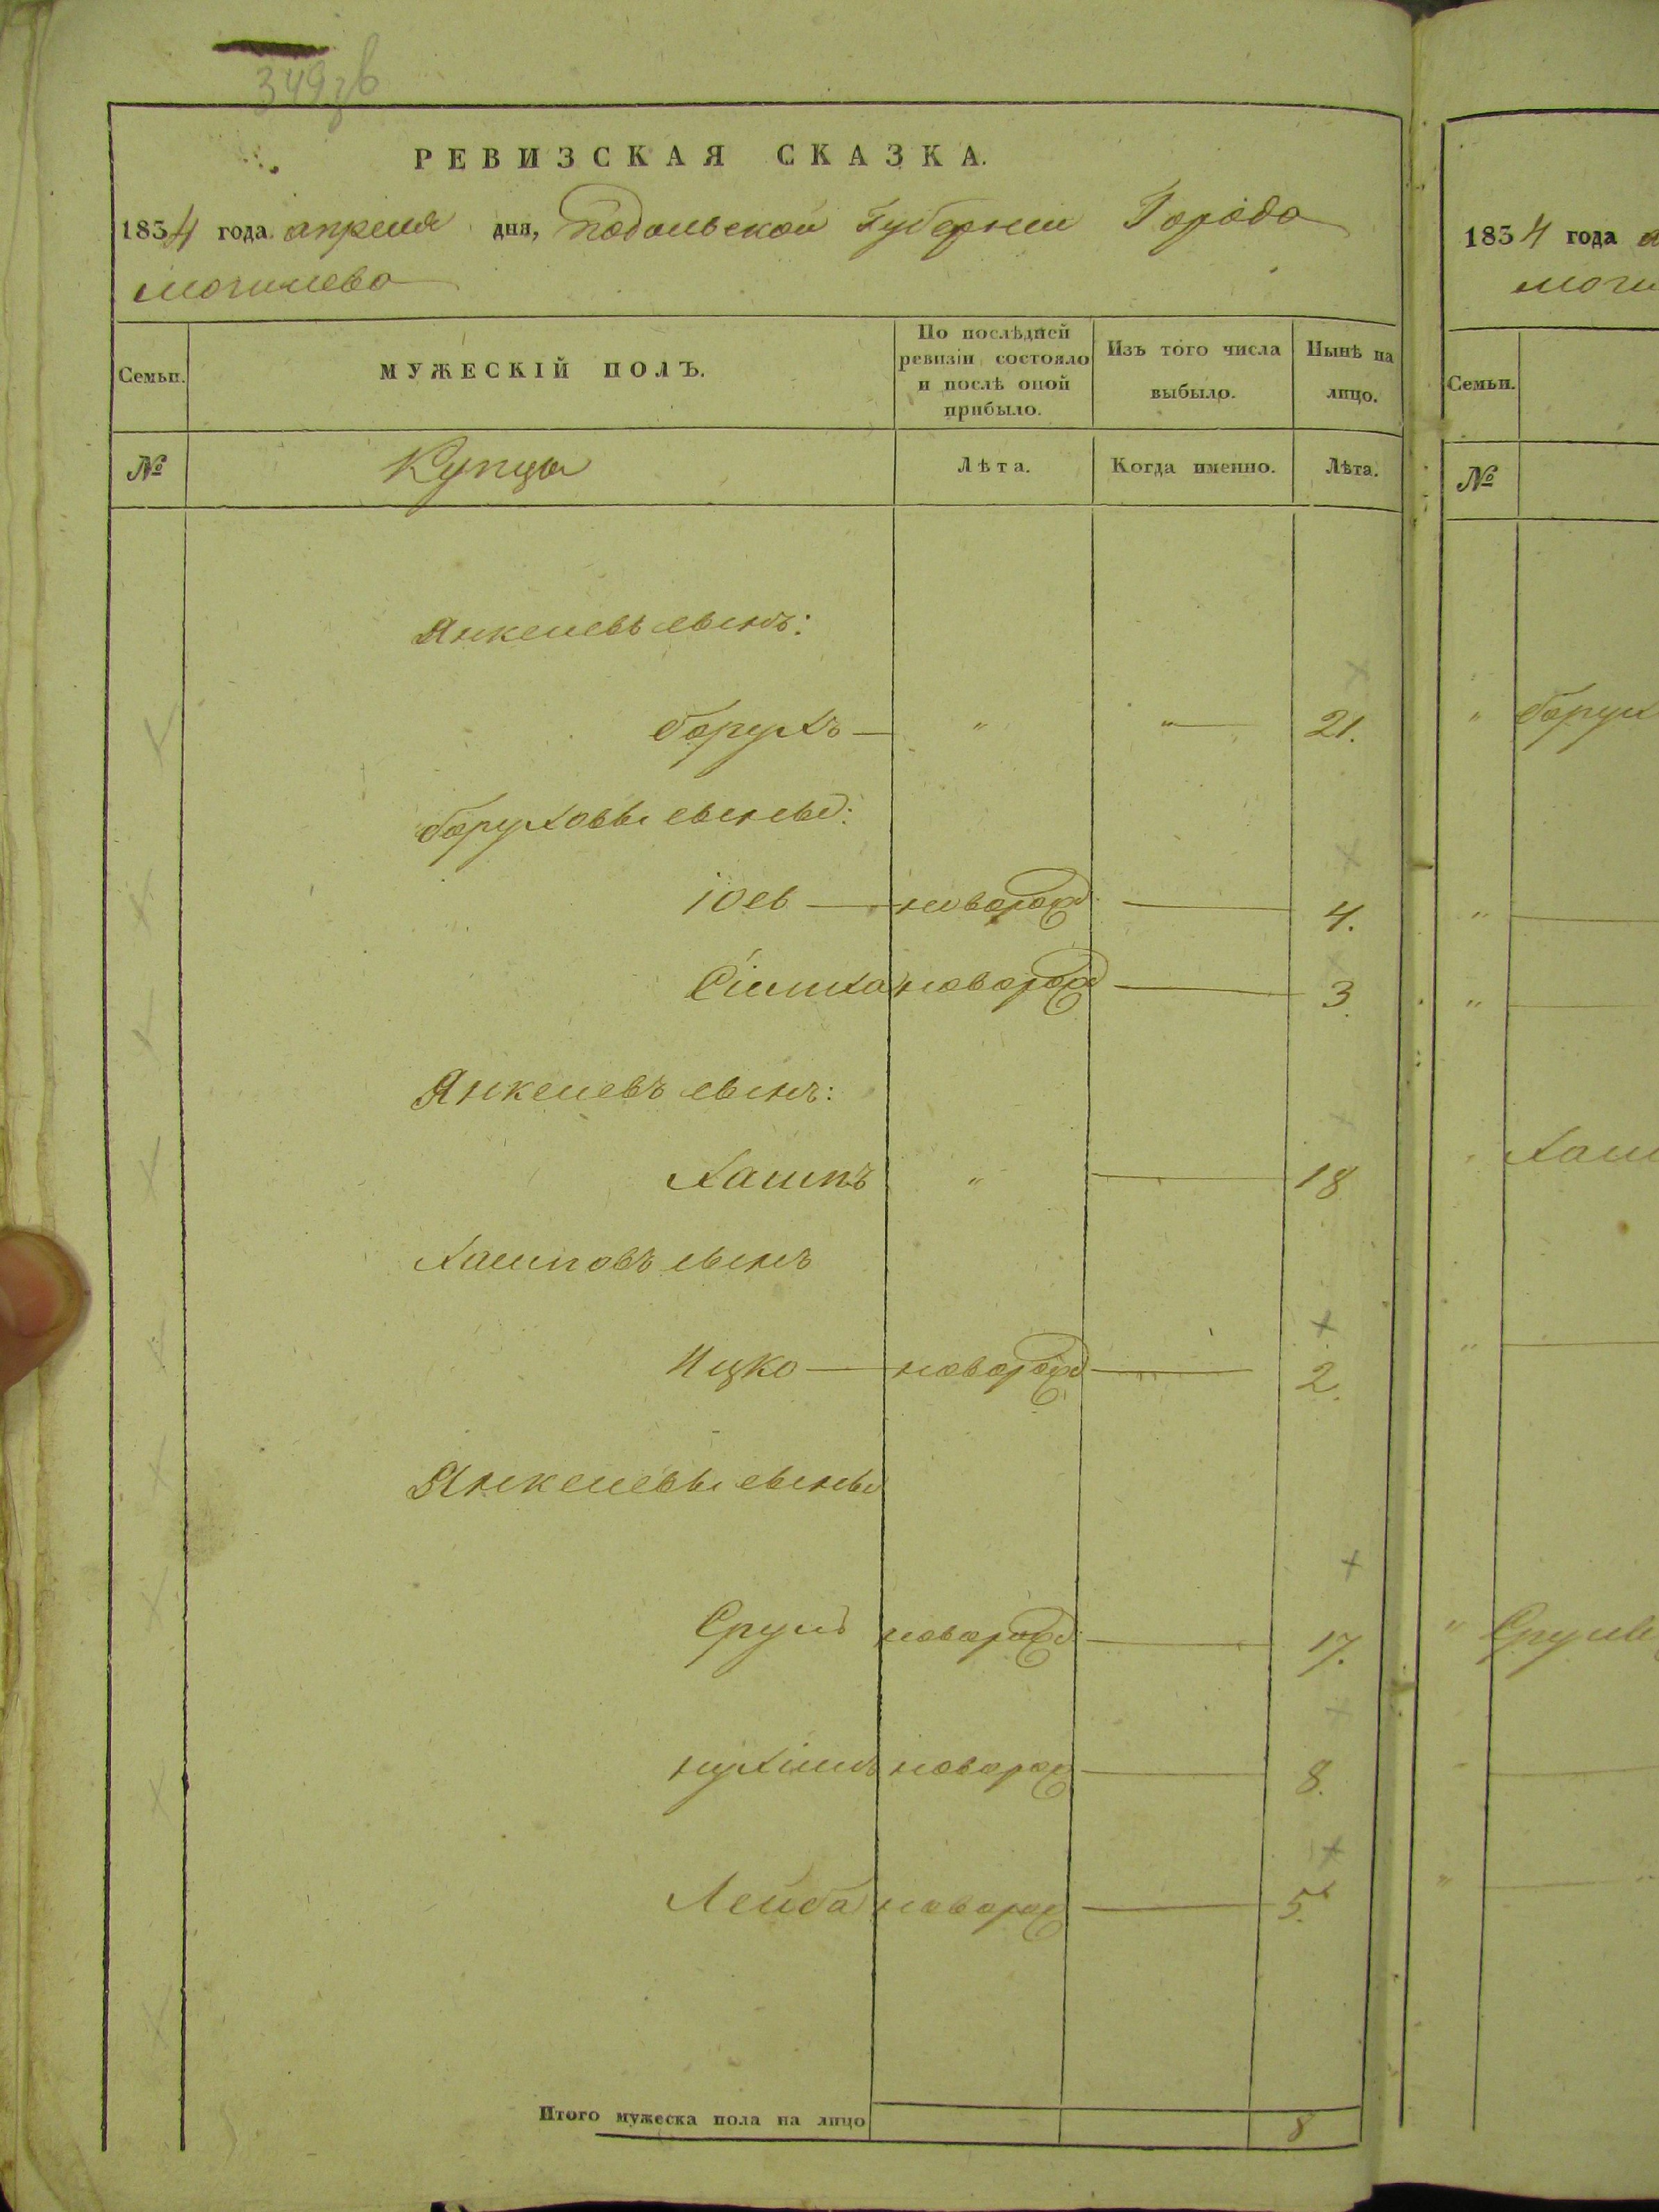 349зв
РЕВИЗСКАЯ СКАЗКА.
1834 года апреля дня, Подольской Губернии Города
Могилева
Семьи.
МУЖЕСКІЙ ПОЛЪ.
По послѣдней ревизіи состояло и послѣ оной прибыло.
Изъ того числа выбыло.
Нынѣ на лицо.
№
Купцы
Лѣта.
Когда именно.
Лѣта.
Янкелевъ сынъ:
Борухъ — " "— 21.
Боруховы сыновья:
Іос — новорожд. — 4.
Сімха новорожд — 3.
Янкелевъ сынъ:
Хаимъ " — 18
Хаимовъ сынъ
Ицко — новорожд — 2.
Янкелевы сыновья
Сруль новорожд: — 17.
Нухімъ новорож — 8.
Лейба новорож — 5.
Итого мужеска пола на лицо 8
1834 года а
Моги
Семьи.
№
" Борух
"
"
" Хаим
"
" Срулев
"
"